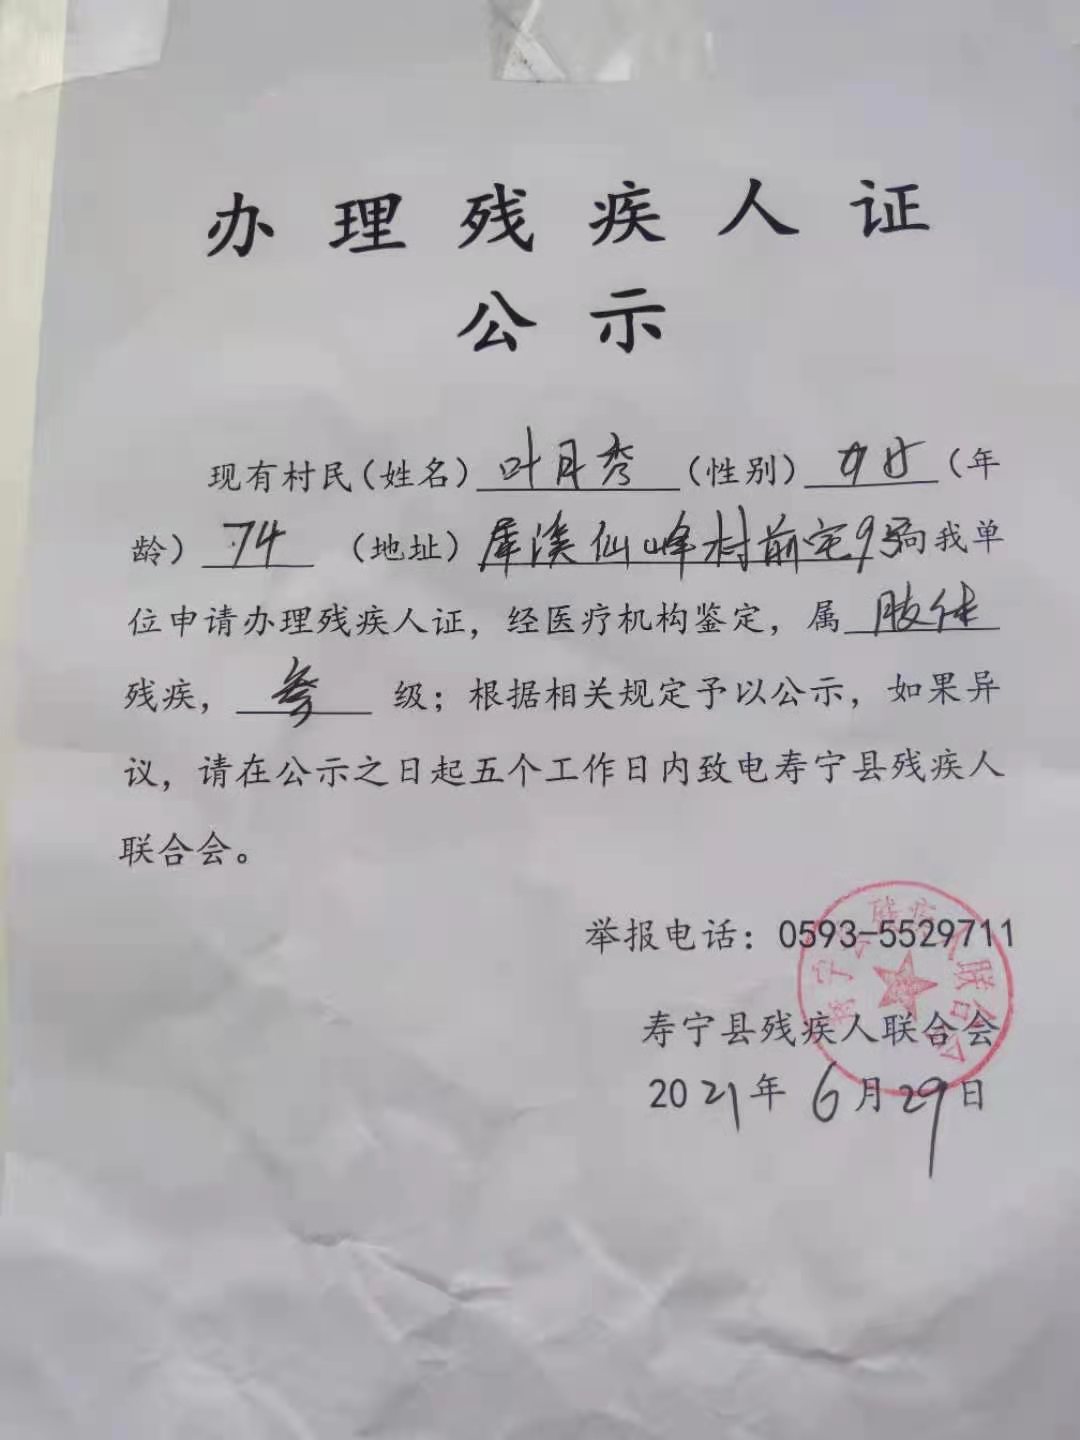 办理残疾人证
公示
现有村民（姓名）叶月秀（性别）女（年
龄）74（地址）犀溪仙峰村前宅9号向我单
位申请办理残疾人证，经医疗机构鉴定，属肢体
残疾，叁级；根据相关规定予以公示，如果异
议，请在公示之日起五个工作日内致电寿宁县残疾人
联合会。
举报电话：0593-5529711
寿宁县残疾人联合会
2021年6月29日
寿宁县残疾人联合会